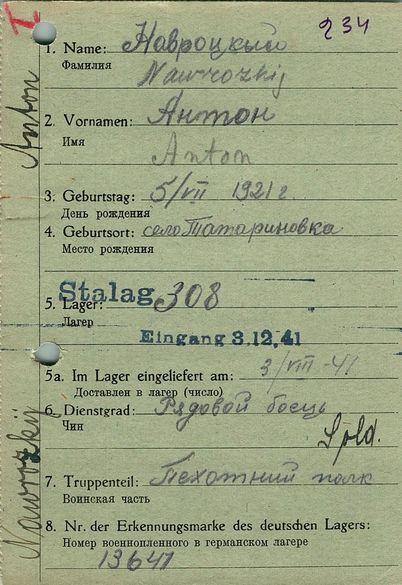 I
234
1. Name: Навроцкый
Фамилия
Nawrozkij
2. Vornamen: Антон
Имя
Anton
3. Geburtstag: 5/VII 1921 г.
День рождения
4. Geburtsort: село Татариновка
Место рождения
Stalag 308
5. Lager:
Лагер
Eingang 3.12.41
5a. Im Lager eingeliefert am: 3/VIII-41
Доставлен в лагер (число)
6. Dienstgrad: Рядовой боець
Чин
Sold.
7. Truppenteil: Пехотний полк
Воинская часть
8. Nr. der Erkennungsmarke des deutschen Lagers:
Номер военнопленного в германском лагере
13641
Nawrozkij Anton